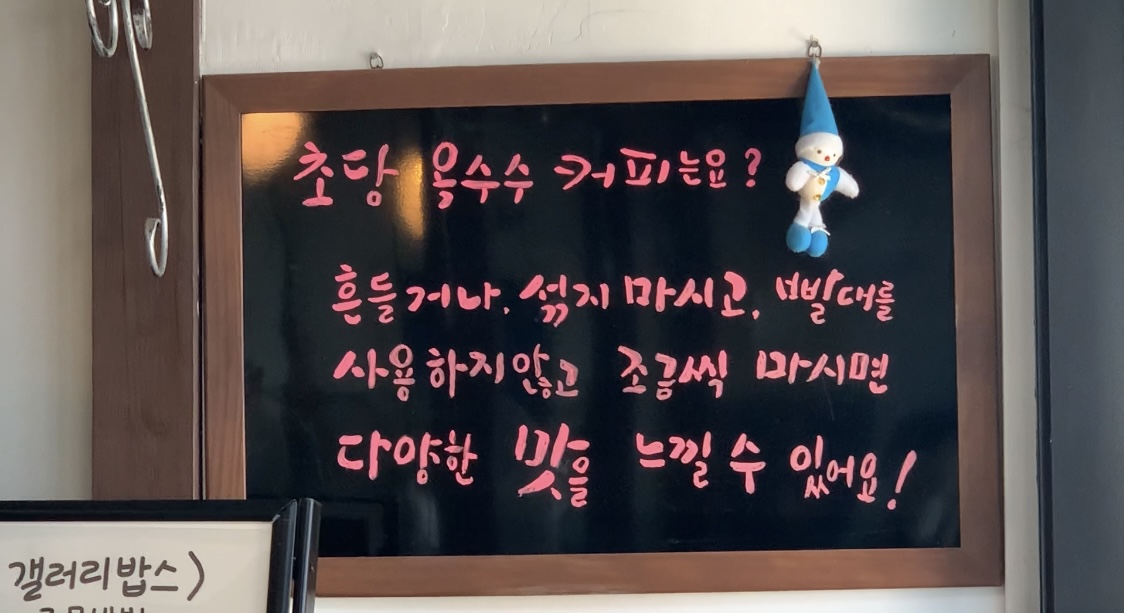 초당 옥수수 커피는요?
흔들거나, 섞지 마시고, 빨대를
사용하지않고 조금씩 마시면
다양한 맛을 느낄 수 있어요!
갤러리밥스)